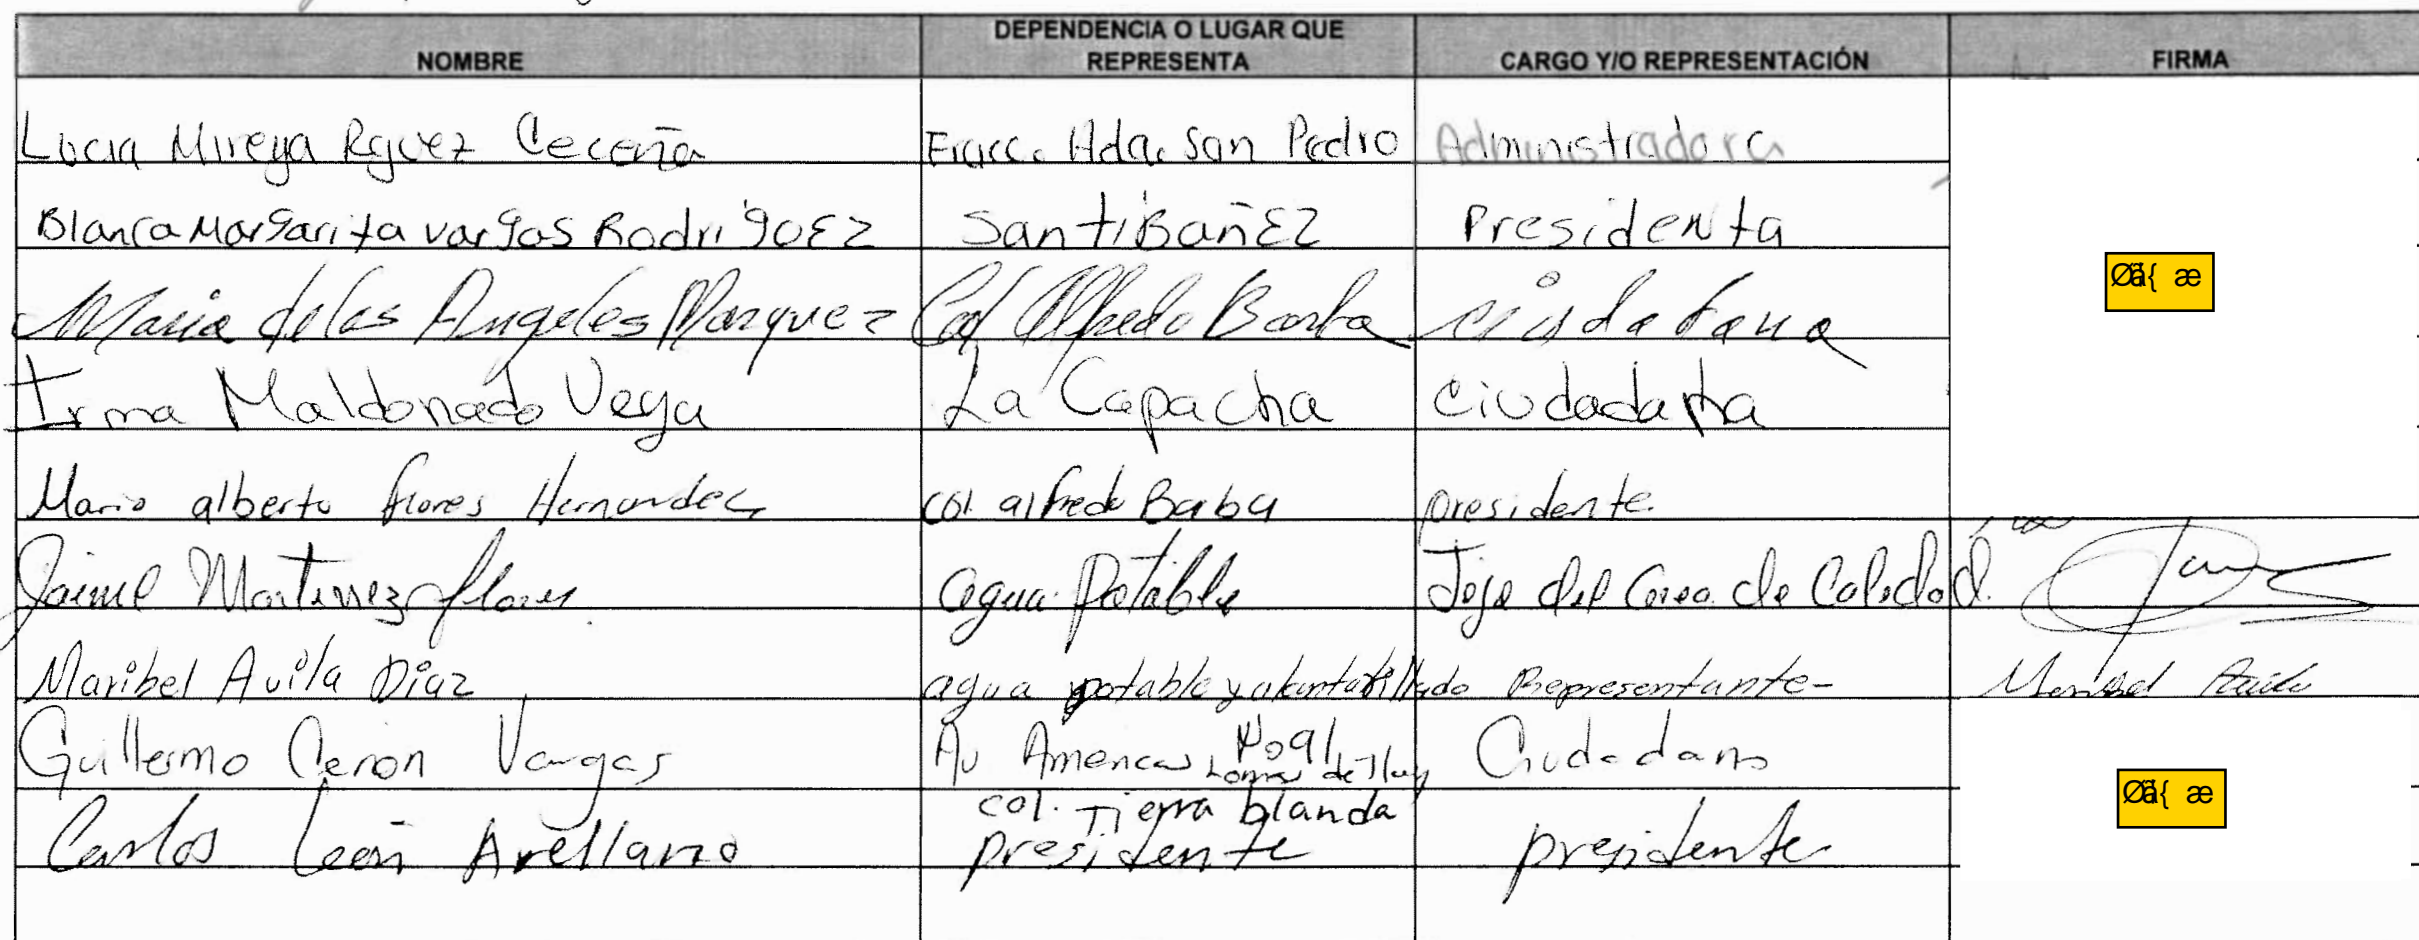 NOMBRE DEPENDENCIA O LUGAR QUE REPRESENTA CARGO Y/O REPRESENTACIÓN FIRMA
Lucia Mireya Rguez Ceceña Fracc. Hda. San Pedro Administradora
Blanca Margarita vargas RodriguEz SantiBañEz Presidenta
Maria de las Angeles Marquez Col Alfredo Barba
Irma Maldonado Vega La Capacha Ciudadana
Mario alberto flores Hernandez col. alfredo Barba presidente
Jaime Martinez flores agua Potable Jefe del Area de Calidad.
Maribel Avila Diaz agua potable y alcantarillado Representante-
Guillermo Ceron Vargas Av Americas No 91 Lomas de Ciudadano
Carlos León Arellano col. Tierra blanda presidente presidente